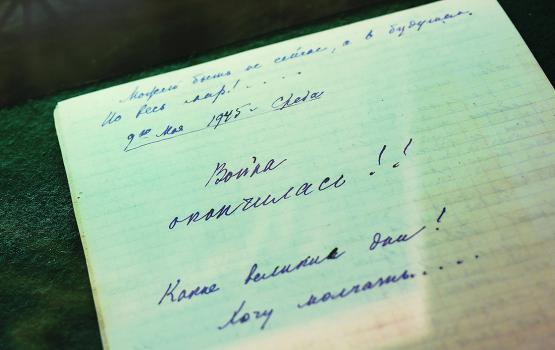 Может быть не сейчас, а в будущем.
Но весь мир! . . . .
9го мая 1945 г Среда
Война
окончилась !!
Какие великие дни !
Хочу молчать. . . . .